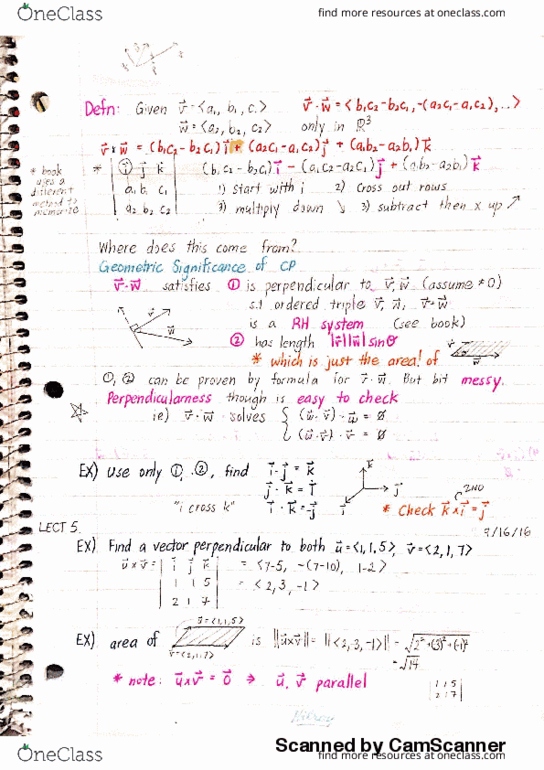 OneClass
find more resources at oneclass.com
Defn: Given v⃗ = <a₁, b₁, c₁> v⃗ × w⃗ = <b₁c₂ - b₂c₁, -(a₂c₁ - a₁c₂), ...>
w⃗ = <a₂, b₂, c₂> only in ℝ³
v⃗ × w⃗ = (b₁c₂ - b₂c₁) i⃗ + (a₂c₁ - a₁c₂) j⃗ + (a₁b₂ - a₂b₁) k⃗
* book uses a different method to
* | i⃗ j⃗ k⃗ | (b₁c₂ - b₂c₁) i⃗ - (a₁c₂ - a₂c₁) j⃗ + (a₁b₂ - a₂b₁) k⃗
a₁ b₁ c₁ 1) start with i 2) cross out rows
a₂ b₂ c₂ 3) multiply down ↘ 3) subtract then x up ↗
Where does this come from?
Geometric Significance of CP
v⃗ × w⃗ satisfies ① is perpendicular to v⃗, w⃗ (assume ≠ 0)
s.t ordered triple v⃗, w⃗, v⃗ × w⃗
is a RH system (see book)
v⃗ w⃗
② has length |v⃗||w⃗| sinθ
* which is just the area! of
w⃗
①, ② can be proven by formula for v⃗ × w⃗. But bit messy.
Perpendicularness though is easy to check
ie) v⃗ × w⃗ solves { (w⃗ × v⃗) · w⃗ = 0
(w⃗ × v⃗) · v⃗ = 0
EX) Use only ①, ②, find i⃗ × j⃗ = k⃗
j⃗ × k⃗ = i⃗
"i cross k" i⃗ × k⃗ = -j⃗
k⃗ j⃗ i⃗
2ND
* Check k⃗ × i⃗ = j⃗
LECT 5.
3/16/16
EX) Find a vector perpendicular to both u⃗ = <1, 1, 5>, v⃗ = <2, 1, 7>
u⃗ × v⃗ = | i⃗ j⃗ k⃗ | = <7-5, -(7-10), 1-2>
1 1 5 = <2, 3, -1>
2 1 7
u⃗ = <1, 1, 5>
EX) area of is ||u⃗ × v⃗|| = ||<2, 3, -1>|| = √2² + (3)² + (-1)²
v⃗ = <2, 1, 7> = √14
* note: u⃗ × v⃗ = 0⃗ ⇒ u⃗, v⃗ parallel
| 1 1 5 |
| 2 1 7 |
Scanned by CamScanner
OneClass
find more resources at oneclass.com